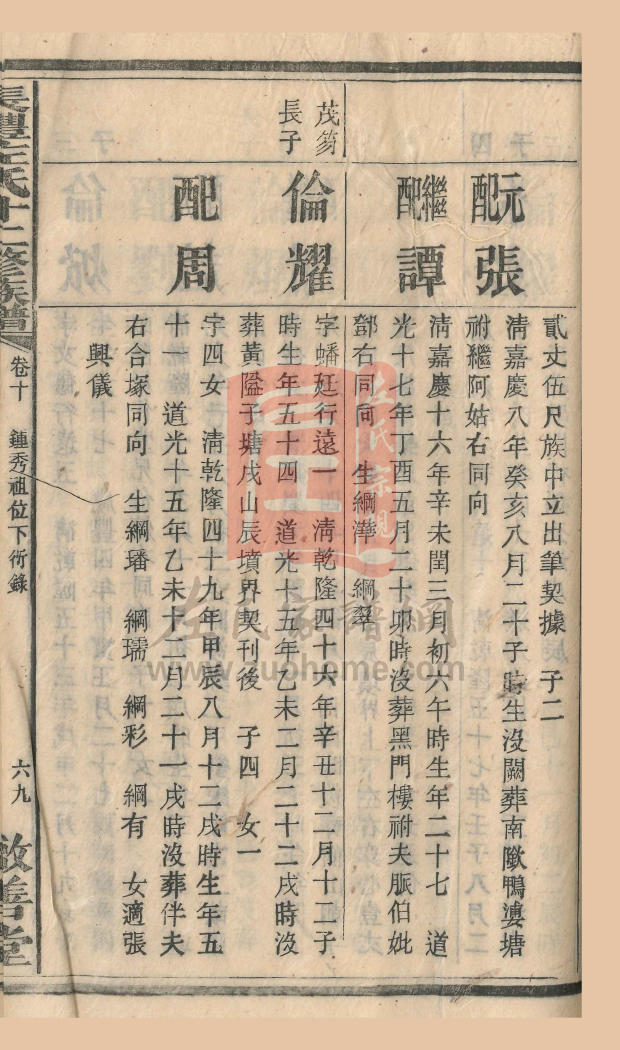 貳丈伍尺族中立出筆契據 子二
元配張
清嘉慶八年癸亥八月二十子時生沒闕葬南隞鴨塘
祔繼阿姑右同向
繼配譚
清嘉慶十六年辛未閏三月初六午時生年二十七 道
光十七年丁酉五月二十卯時沒葬黑門樓祔夫脈伯妣
鄧右同向 生綱澕 綱翠
茂芴長子
倫耀
字蟠廷行遠一 清乾隆四十六年辛丑十二月十三子
時生年五十四 道光十五年乙未二月二十二戌時沒
葬黃隘子塘戌山辰墳界契刊後 子四 女一
配周
字四女 清乾隆四十九年甲辰八月十二戌時生年五
十一 道光十五年乙未十二月二十一戌時沒葬伴夫
右合塚同向 生綱璠 綱瓀 綱彩 綱有 女適張
興儀
長澧左氏十二修族譜
卷十 鍾秀祖位下衍錄
六九
敦善堂
左氏宗親
左氏家譜網
www.zuohome.com